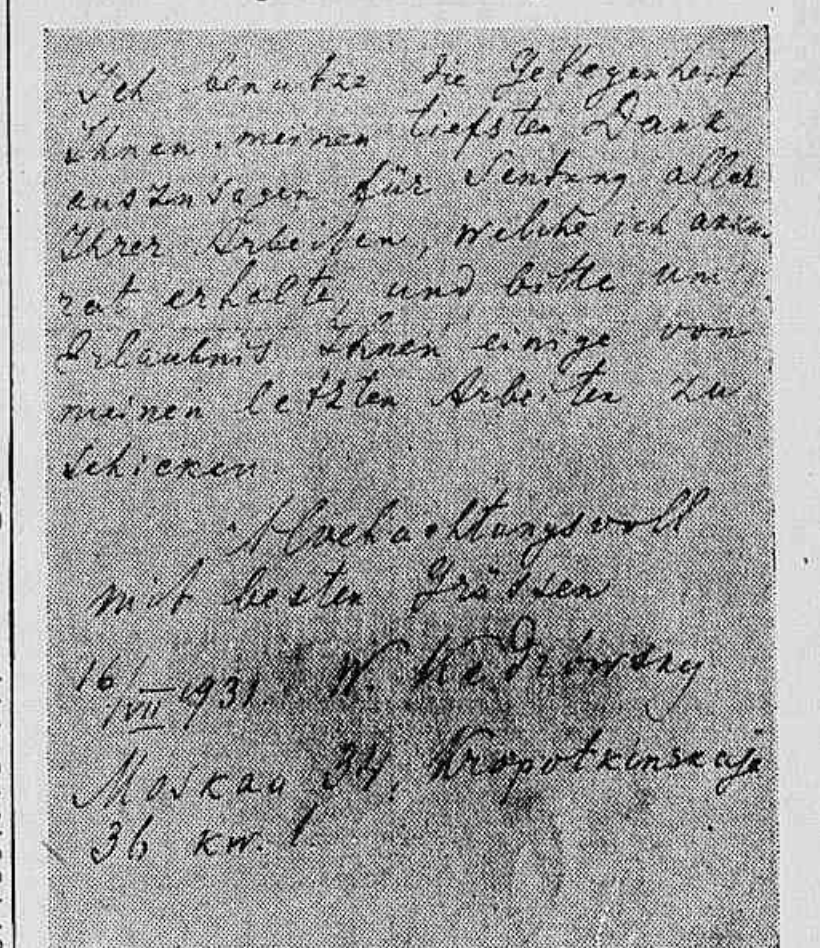 Ich benutze die Gelegenheit
Ihnen meinen tiefsten Dank
auszusagen für Sendung aller
Ihrer Arbeiten, welche ich
erhalte, und bitte um
Erlaubnis Ihnen einige von
meinen letzten Arbeiten zu
schicken.
Hochachtungsvoll
mit besten Grüssen
16/VII 1931. W. Kedrowsky
Moskau 34, Kropotkinskaja
36 kw. 1.